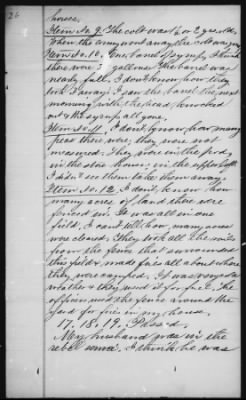 26
house.
Item No. 9. The colt was 1 or 2 yrs old.
When the army went away the colt was gone.
Item No. 10. One barrel of syrup, I think
there were 3 gallons. The barrel was
nearly full. I don't know how they
took it away. I saw the barrel the next
morning with the head knocked
out & the syrup all gone.
Item No. 11. I don't know how many
peas there were, they were not
measured. They were in the
in the store house, in the upper loft.
I didn't see them take them away.
Item No. 12. I don't know how
many acres of land there were
fenced in. It was all in one
field. I can't tell how many acres
were cleared. They took all the rails
from the fence that surrounded
this field & made fires all about where
they were camped. It was
weather & they used it for fuel. The
officers used the fence around the
yard for fires in my house.
17. 18. 19. Passed.
My husband was in the
rebel service. I think he was